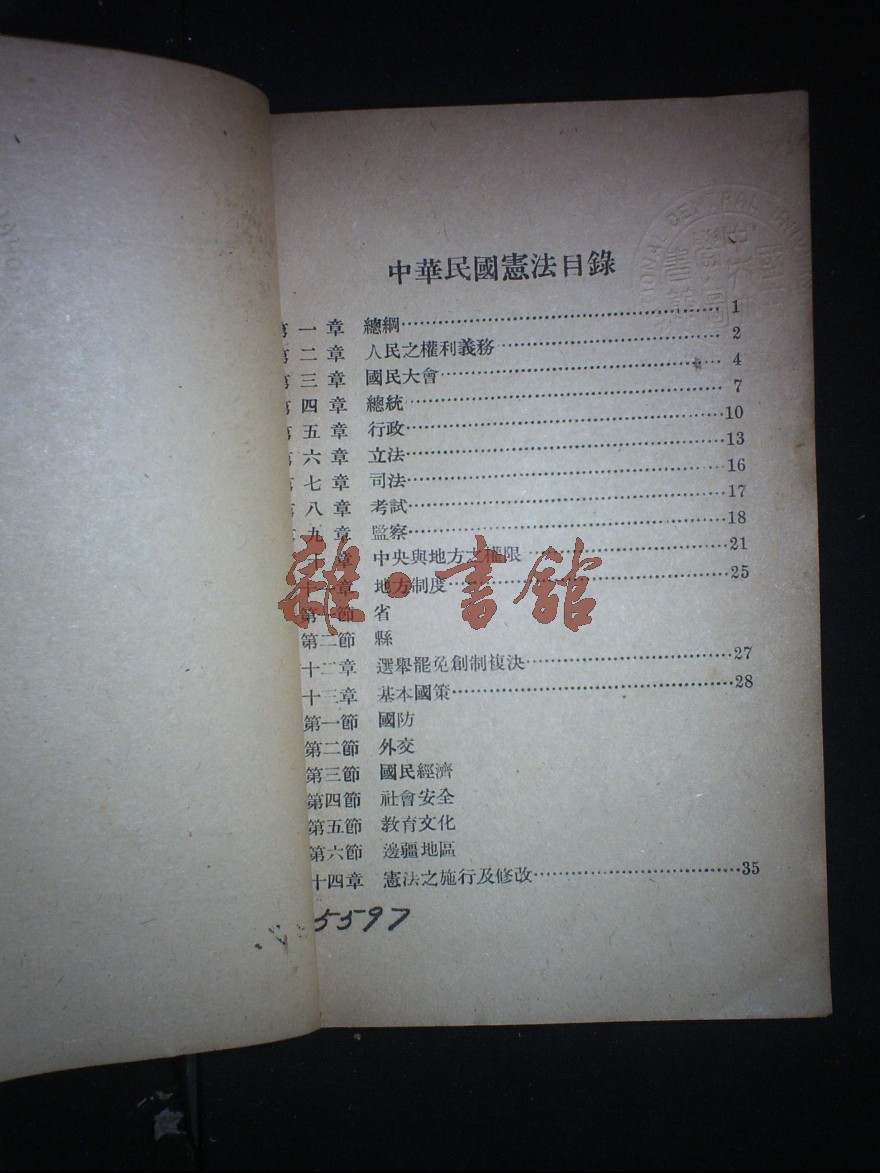 中華民國憲法目錄
第一章 總綱…1
第二章 人民之權利義務…2
第三章 國民大會…4
第四章 總統…7
第五章 行政…10
第六章 立法…13
第七章 司法…16
第八章 考試…17
九章 監察…18
十章 中央與地方之權限…21
十一章 地方制度…25
第一節 省
第二節 縣
十二章 選舉罷免創制複決…27
十三章 基本國策…28
第一節 國防
第二節 外交
第三節 國民經濟
第四節 社會安全
第五節 教育文化
第六節 邊疆地區
十四章 憲法之施行及修改…35
5597
雜·書館